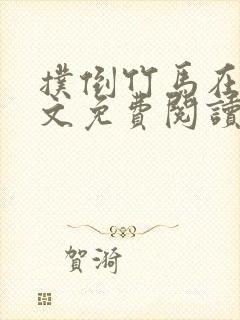 撲倒竹馬在
文免費閱讀
賀漪